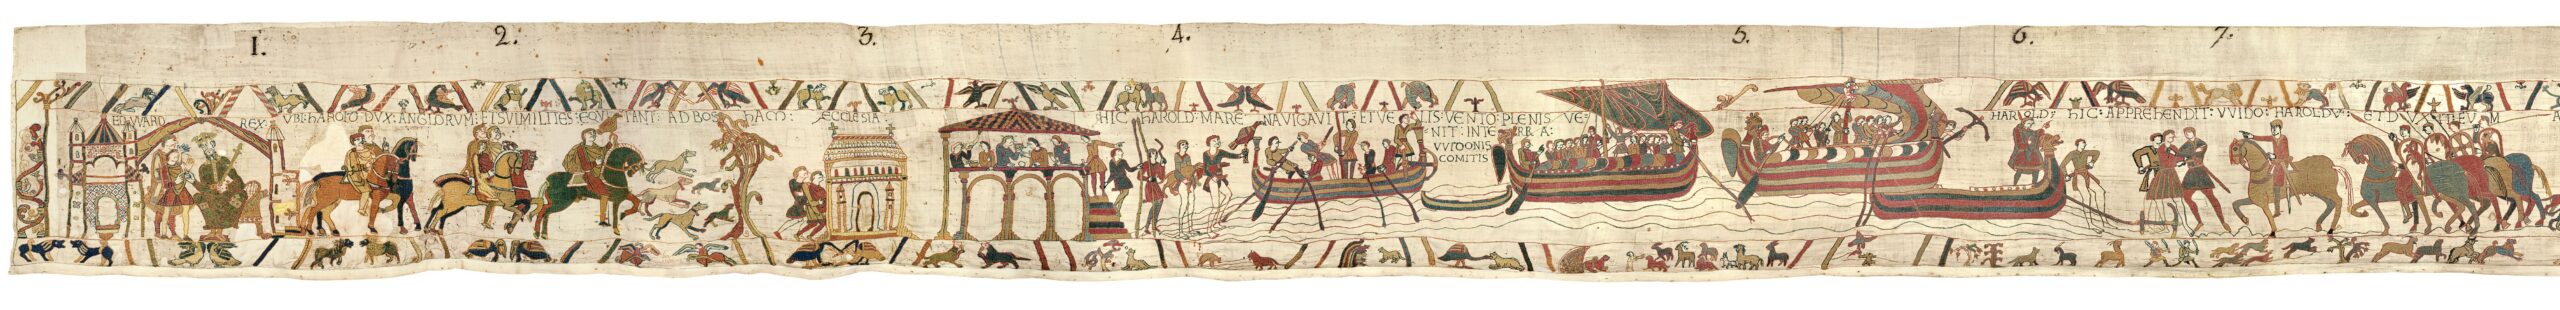 1.
2.
3.
4.
5.
6.
7.
EDVVARD REX:
VBI: HAROLD DVX: ANGLORVM: ET SVI MILITES: EQVITANT: AD BOSHAM:
ECCLESIA:
HIC HAROLD: MARE NAVIGAVIT:
ET VELIS: VENTO: PLENIS VE-
NIT: IN TERRA:
VVIDONIS
COMITIS
HAROLD:
HIC: APPREHENDIT: VVIDO: HAROLDV:
ET DVXIT: EVM A